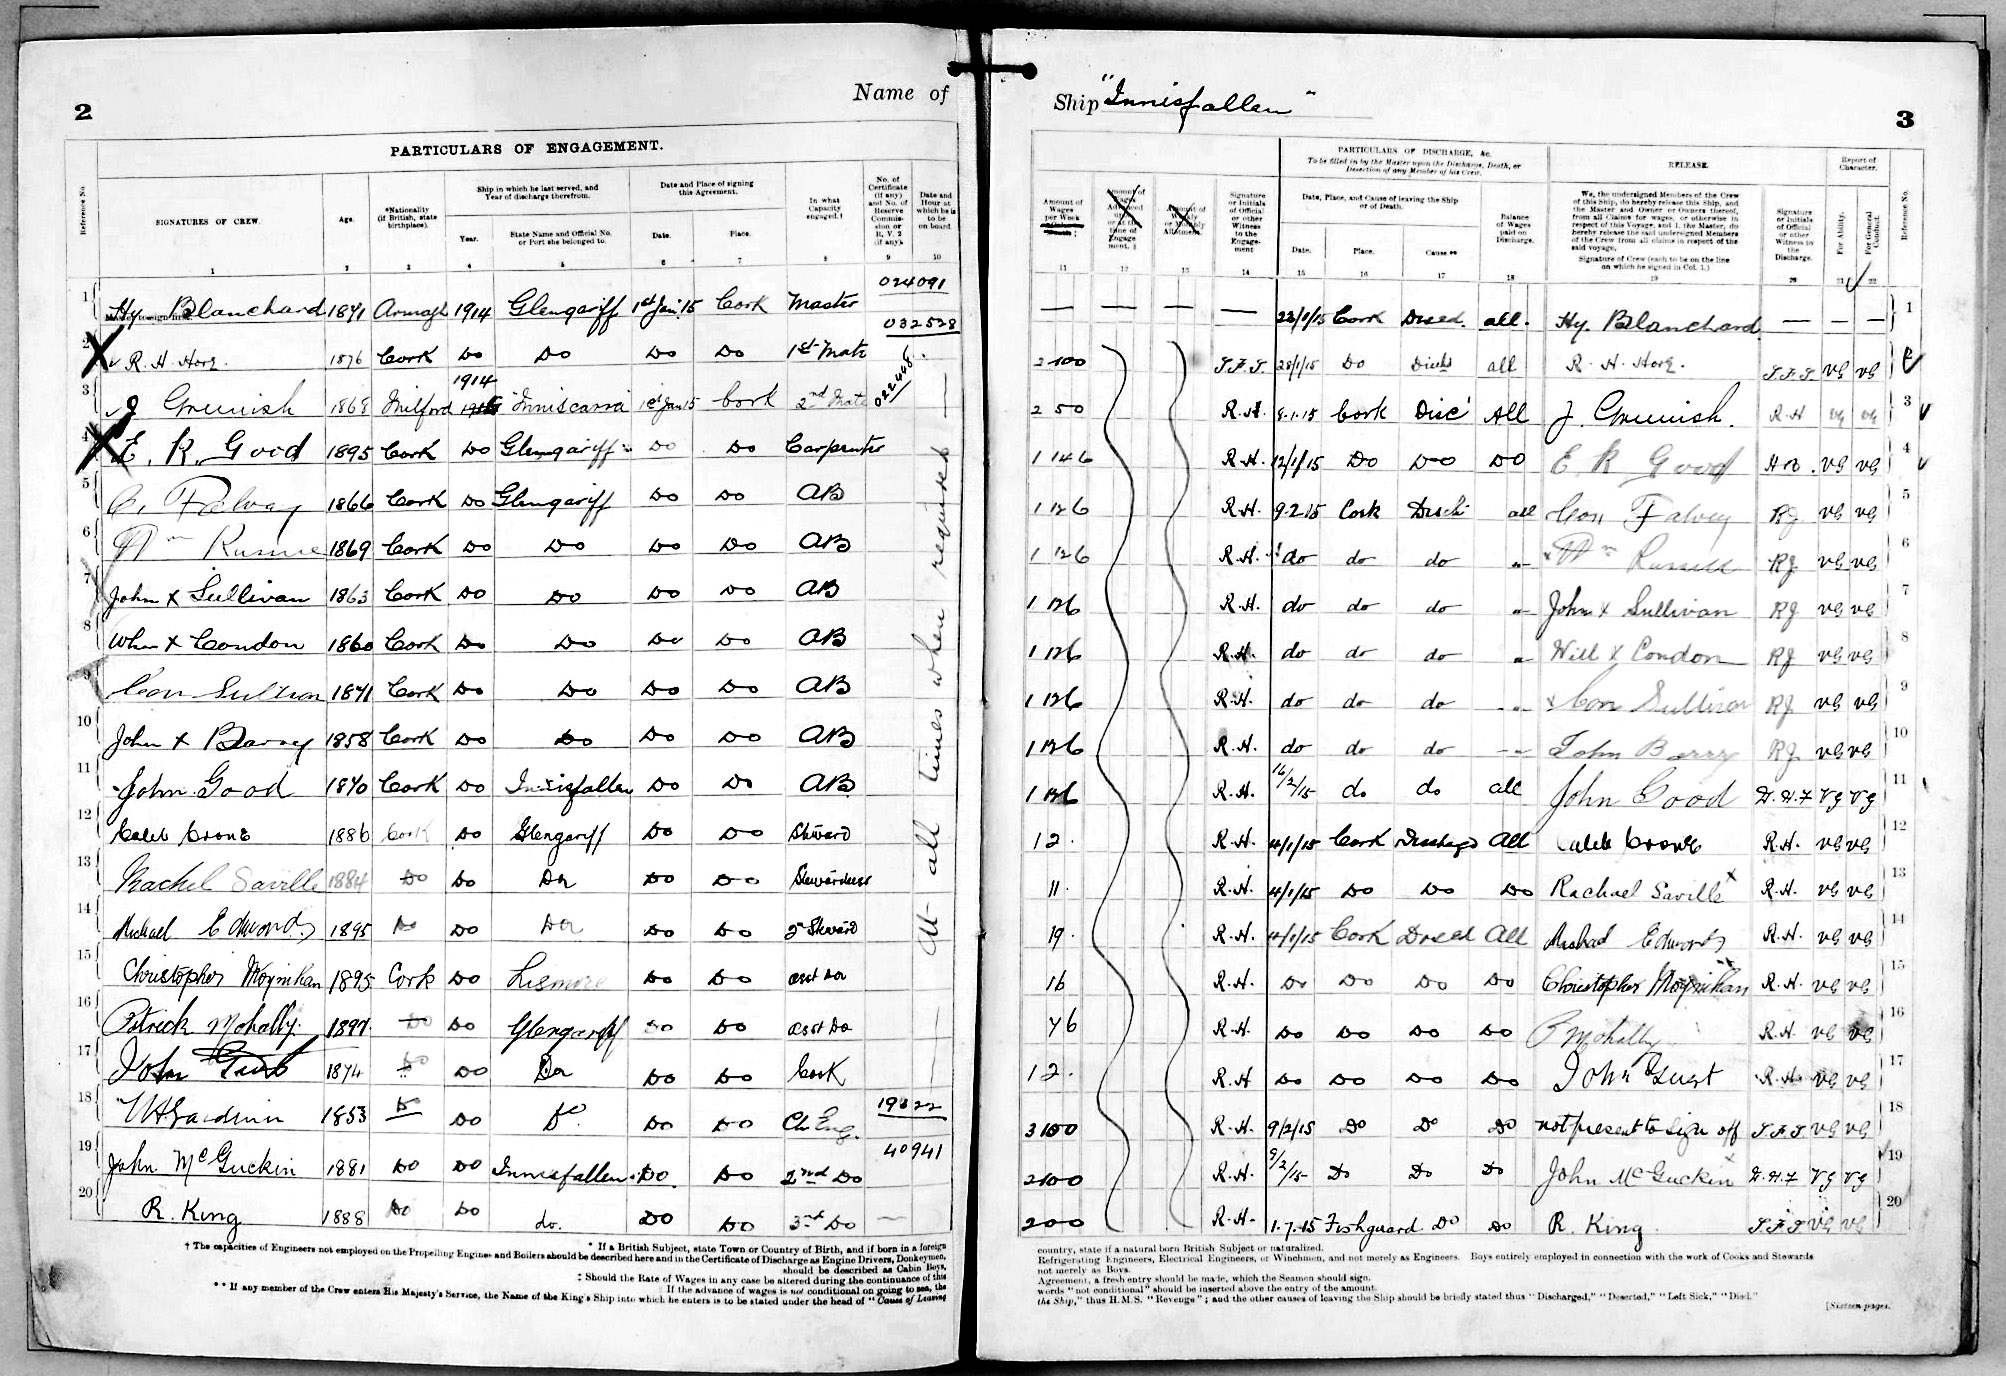 2
Name of
PARTICULARS OF ENGAGEMENT.
Reference No.
SIGNATURES OF CREW.
Age.
*Nationality (if British, state birthplace).
Ship in which he last served, and Year of discharge therefrom.
Year.
State Name and Official No. or Port she belonged to.
Date and Place of signing this Agreement.
Date.
Place.
In what Capacity engaged.†
No. of Certificate (if any) and No. of Reserve Commission or R.V. 2 (if any).
Date and Hour at which he is to be on board.
1 2 3 4 5 6 7 8 9 10
024091
1 Hy Blanchard 1871 Armagh 1914 Glengariff 1st Jan 15 Cork Master
032528
2 R. H. Hore. 1876 Cork Do Do Do Do 1st Mate
1914
022448
3 J Greenish 1868 Milford Inniscarra 1st Jan 15 Cork 2nd Mate
4 E. R. Good 1895 Cork Do Glengariff Do Do Carpenter
5 C. Falvey 1866 Cork Do Glengariff Do Do AB
6 Wm 1869 Cork Do Do Do Do AB
7 John X Sullivan 1863 Cork Do Do Do Do AB
8 X Condon 1860 Cork Do Do Do Do AB
9 Con Sullivan 1871 Cork Do Do Do Do AB
10 John X Barry 1858 Cork Do Do Do Do AB
11 John Good 1870 Cork Do Innisfallen Do Do AB
12 Caleb Crone 1886 Cork Do Glengariff Do Do Steward
13 Rachel Saville 1884 Do Do Do Do Do Stewardess
14 Michael Edwards 1895 Do Do Do Do Do 2nd Steward
15 Christopher Moynihan 1895 Cork Do Lismore Do Do asst Do
16 Patrick Mohally. 1897 Do Do Glengariff Do Do asst Do
17 John Gust 1874 Do Do Do Do Do Cook
19322
18 1853 Do Do Do Do Do Ch Eng.
40941
19 John McGuckin 1881 Do Do Innisfallen Do Do 2nd Do
20 R. King 1888 Do Do do. Do Do 3rd Do
At all times when required
* If a British Subject, state Town or Country of Birth, and if born in a foreign
† The capacities of Engineers not employed on the Propelling Engines and Boilers should be described here and in the Certificate of Discharge as Engine Drivers, Donkeymen,
should be described as Cabin Boys,
‡ Should the Rate of Wages in any case be altered during the continuance of this
If the advance of wages is not conditional on going to sea, the
** If any member of the Crew enters His Majesty's Service, the Name of the King's Ship into which he enters is to be stated under the head of "Cause of Leaving
Ship "Innisfallen"
3
Amount of Wages per Week
Amount of Wages Advanced upon or at the time of Engagement. §
Amount of Weekly or Monthly Allotment.
Signature or Initials of Official or other Witness to the Engagement
PARTICULARS OF DISCHARGE, &c.
To be filled in by the Master upon the Discharge, Death, or Desertion of any Member of his Crew.
Date, Place, and Cause of leaving the Ship or of Death.
Date.
Place.
Cause.**
Balance of Wages paid on Discharge.
RELEASE.
We, the undersigned Members of the Crew of this Ship, do hereby release this Ship, and the Master and Owner or Owners thereof, from all Claims for wages, or otherwise in respect of this Voyage, and I, the Master, do hereby release the said undersigned Members of the Crew from all claims in respect of the said voyage.
Signature of Crew (each to be on the line on which he signed in Col. 1.)
Signature or Initials of Official or other Witness to the Discharge.
Report of Character.
For Ability.
For General Conduct.
Reference No.
11 12 13 14 15 16 17 18 19 20 21 22
28/1/15 Cork Dised. all. Hy. Blanchard 1
2 10 0 J.F.J. 28/1/15 Do Disch all R. H. Hore. J.F.J. VG VG 2
2 5 0 R.H. 8.1.15 Cork Disc' All J. Greenish. R.H VG VG 3
1 14 6 R.H. 12/1/15 Do Do Do E R Good VG VG 4
1 12 6 R.H. 9.2.15 Cork Disch all Con Falvey RJ VG VG 5
1 12 6 R.H. do do do " Wm Russell RJ VG VG 6
1 12 6 R.H. do do do " John X Sullivan RJ VG VG 7
1 12 6 R.H. do do do " Will X Condon RJ VG VG 8
1 12 6 R.H. do do do " Con Sullivan RJ VG VG 9
1 12 6 R.H. do do do " John Barry RJ VG VG 10
1 12 6 R.H. 16/2/15 do do all John Good D.H.F VG VG 11
12. R.H. 4/1/15 Cork All Caleb Crone R.H. VG VG 12
11. R.H. 4/1/15 Do Do Do Rachael Saville R.H. VG VG 13
19. R.H. 4/1/15 Cork Dised All Michael Edwards R.H. VG VG 14
16 R.H. Do Do Do Do Christopher Moynihan R.H. VG VG 15
7 6 R.H. Do Do Do Do P Mohally R.H. VG VG 16
1 2. R.H Do Do Do Do John Guest R.H. VG VG 17
3 10 0 R.H. 9/2/15 Do Do Do not present to sign off J.F.J. VG VG 18
2 10 0 R.H. 9/2/15 Do Do Do John McGuckin D.H.F VG VG 19
2 0 0 R.H. 1.7.15 Fishguard Do Do R. King. J.F.J VG VG 20
country, state if a natural born British Subject or naturalized.
Refrigerating Engineers, Electrical Engineers, or Winchmen, and not merely as Engineers. Boys entirely employed in connection with the work of Cooks and Stewards
not merely as Boys.
Agreement, a fresh entry should be made, which the Seamen should sign.
words "not conditional" should be inserted above the entry of the amount.
the Ship," thus H.M.S. "Revenge"; and the other causes of leaving the Ship should be briefly stated thus "Discharged," "Deserted," "Left Sick," "Died."
[Sixteen pages.